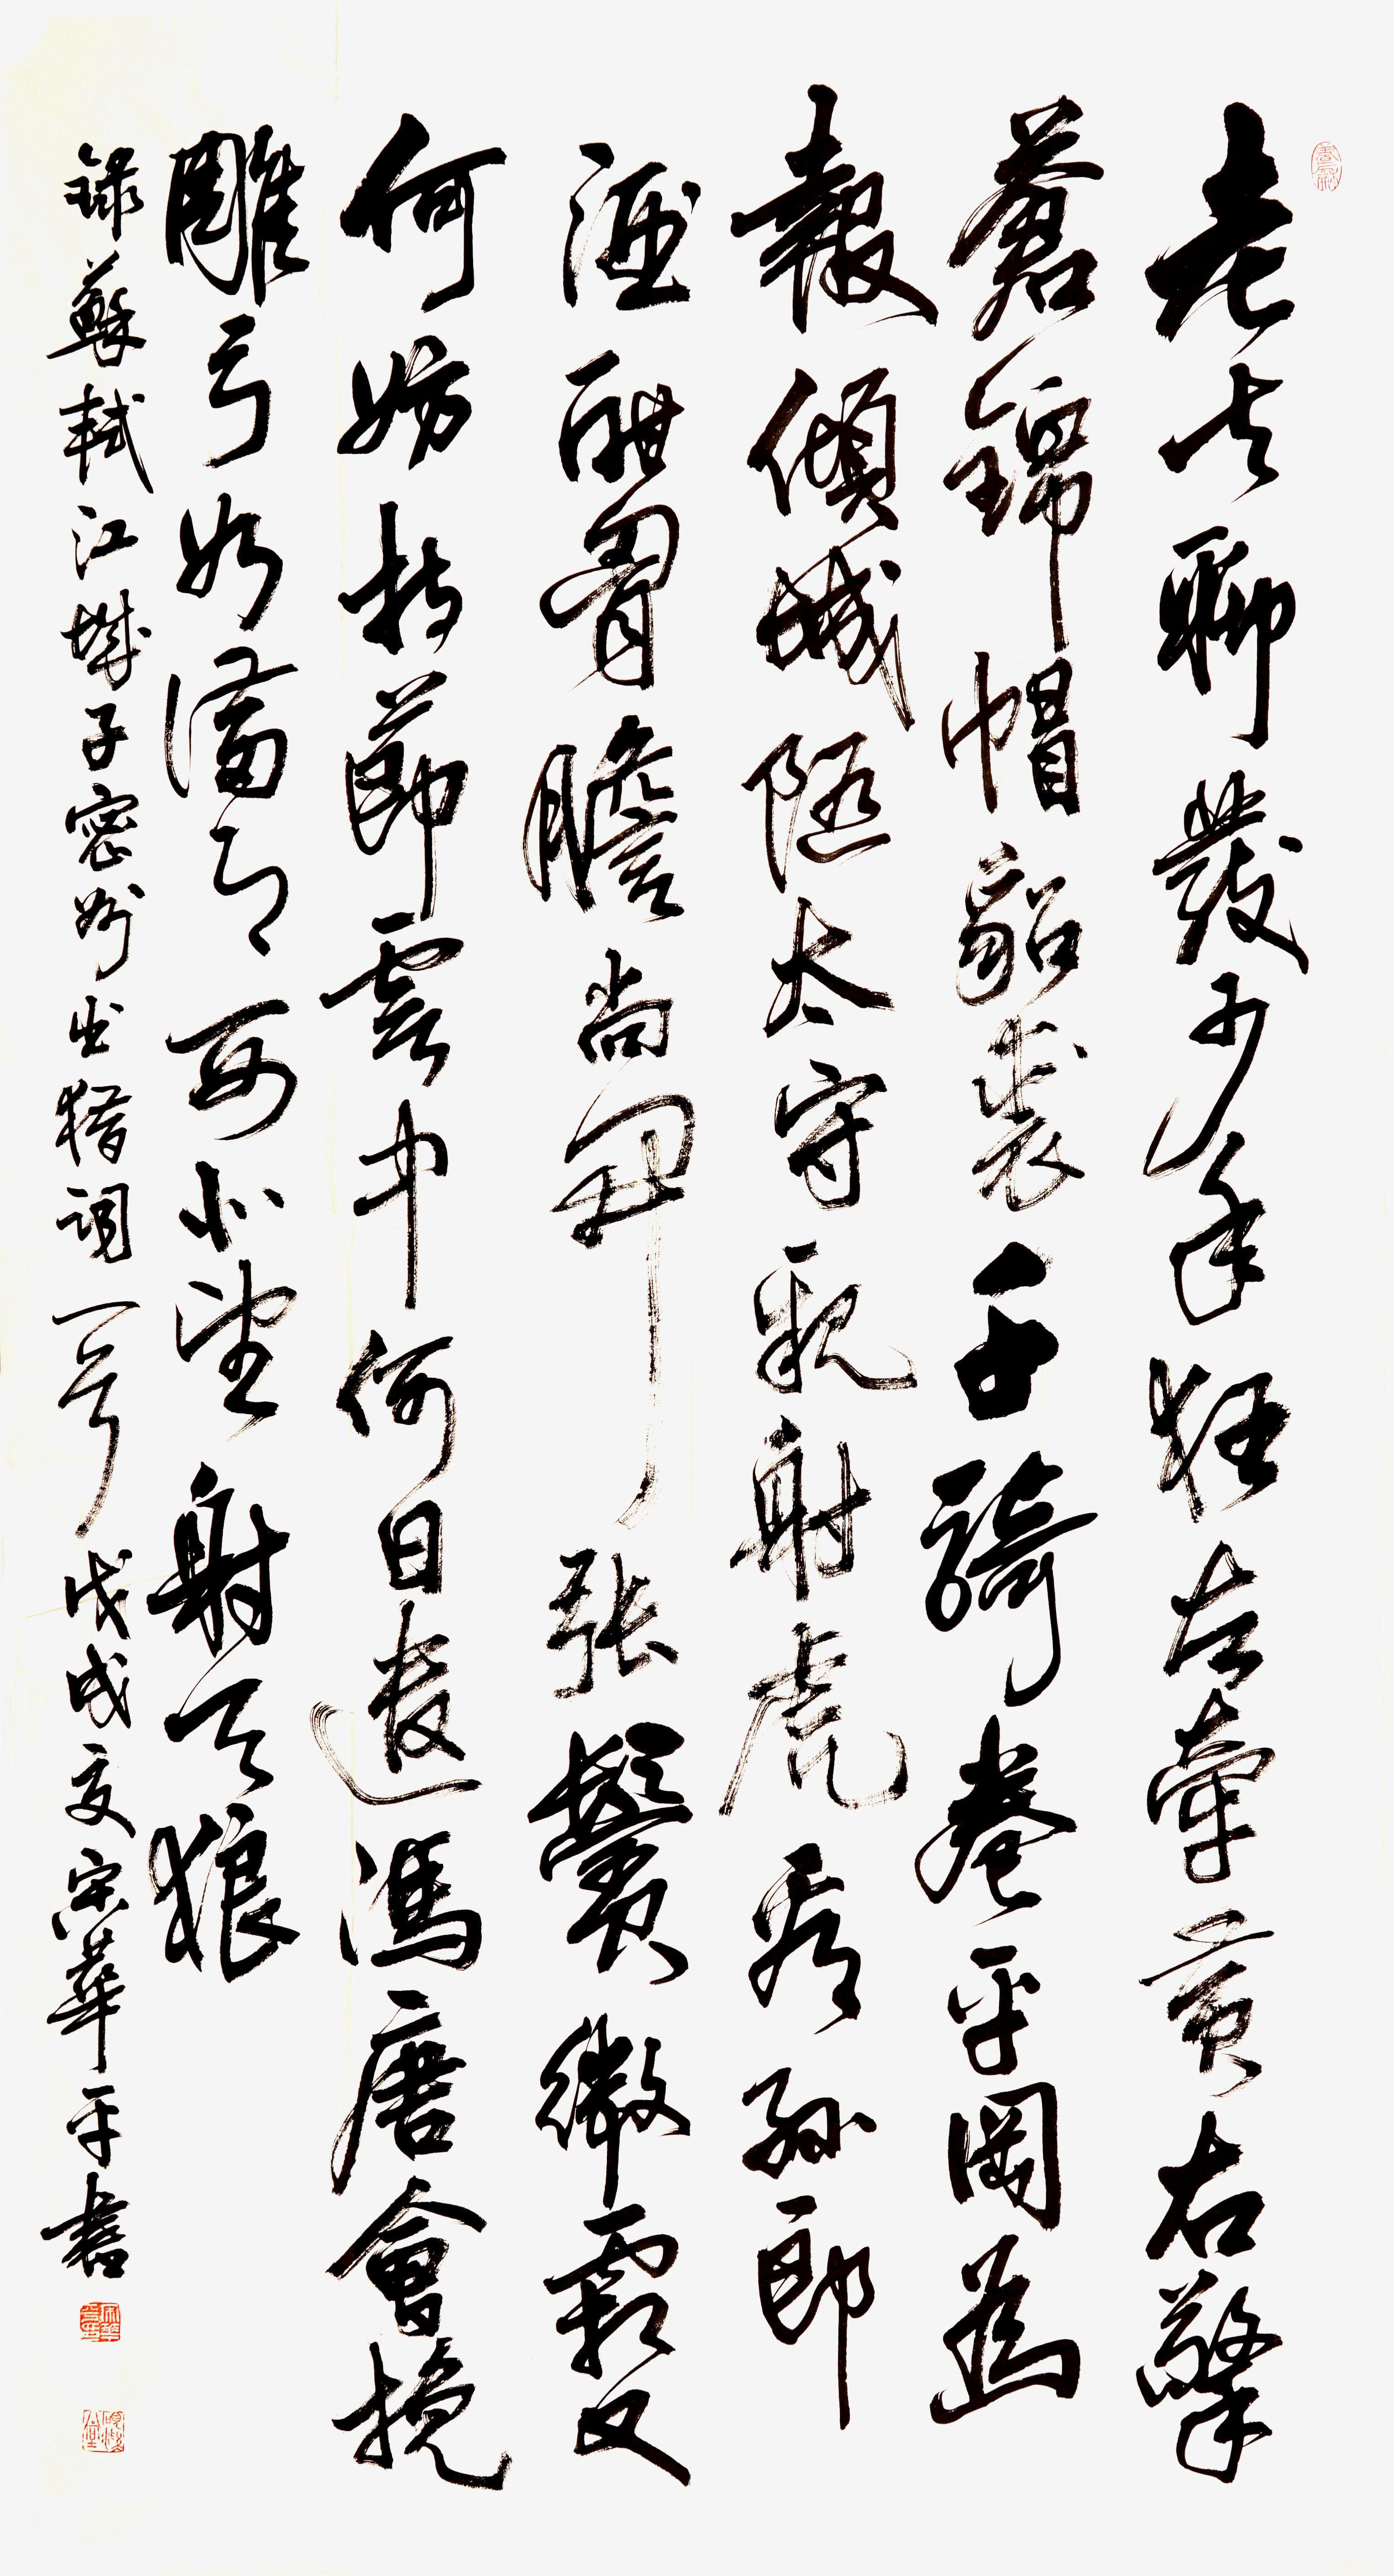 老夫聊發少年狂左牽黃右擎
蒼錦帽貂裘千騎卷平岡為
報傾城隨太守親射虎看孫郎
酒酣胸膽尚開張鬢微霜又
何妨持節雲中何日遣馮唐會挽
雕弓如滿月西北望射天狼
録蘇軾江城子密州出猎詞一首戊戌夏宋華平書